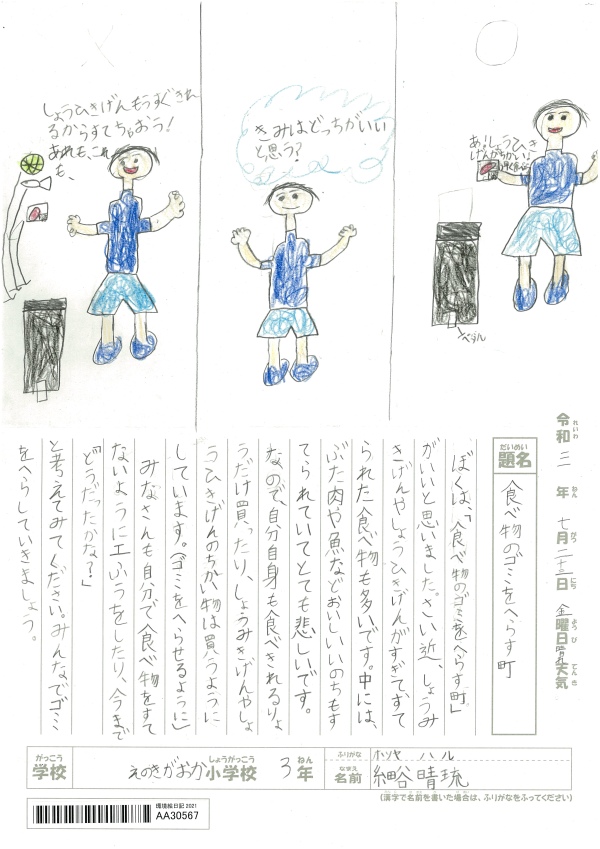 しょうひきげんもうすぐきれ
るからすてちゃおう！
あれも、これ
も、
きみはどっちがいい
と思う？
あ！しょうひ
げんがちかい！
ペダル
令和三年七月二十三日金曜日
天気
れいわ
ねん
がつ
にち
ようび
てんき
だいめい
題名
食べ物のゴミをへらす町
ぼくは、「食べ物のゴミをへらす町」
がいいと思いました。さい近、しょうみ
きげんやしょうひきげんがすぎてすて
られた食べ物も多いです。中には、
ぶた肉や魚などおいしいいのちもす
てられていてとても悲しいです。
なので、自分自身も食べきれるりょ
うだけ買ったり、しょうみきげんやしょ
うひきげんのちかい物は買うように
しています。（ゴミをへらせるように）
みなさんも自分で食べ物をすて
ないように工ふうをしたり、今まで
『どうだったかな？』
と考えてみてください。みんなでゴミ
をへらしていきましょう。
がっこう
学校
えのきがおか小学校
しょうがっこう
3年
ねん
ふりがな
ホソヤ ハル
なまえ
名前
細谷晴琉
（漢字で名前を書いた場合は、ふりがなをふってください）
環境絵日記 2021
AA30567